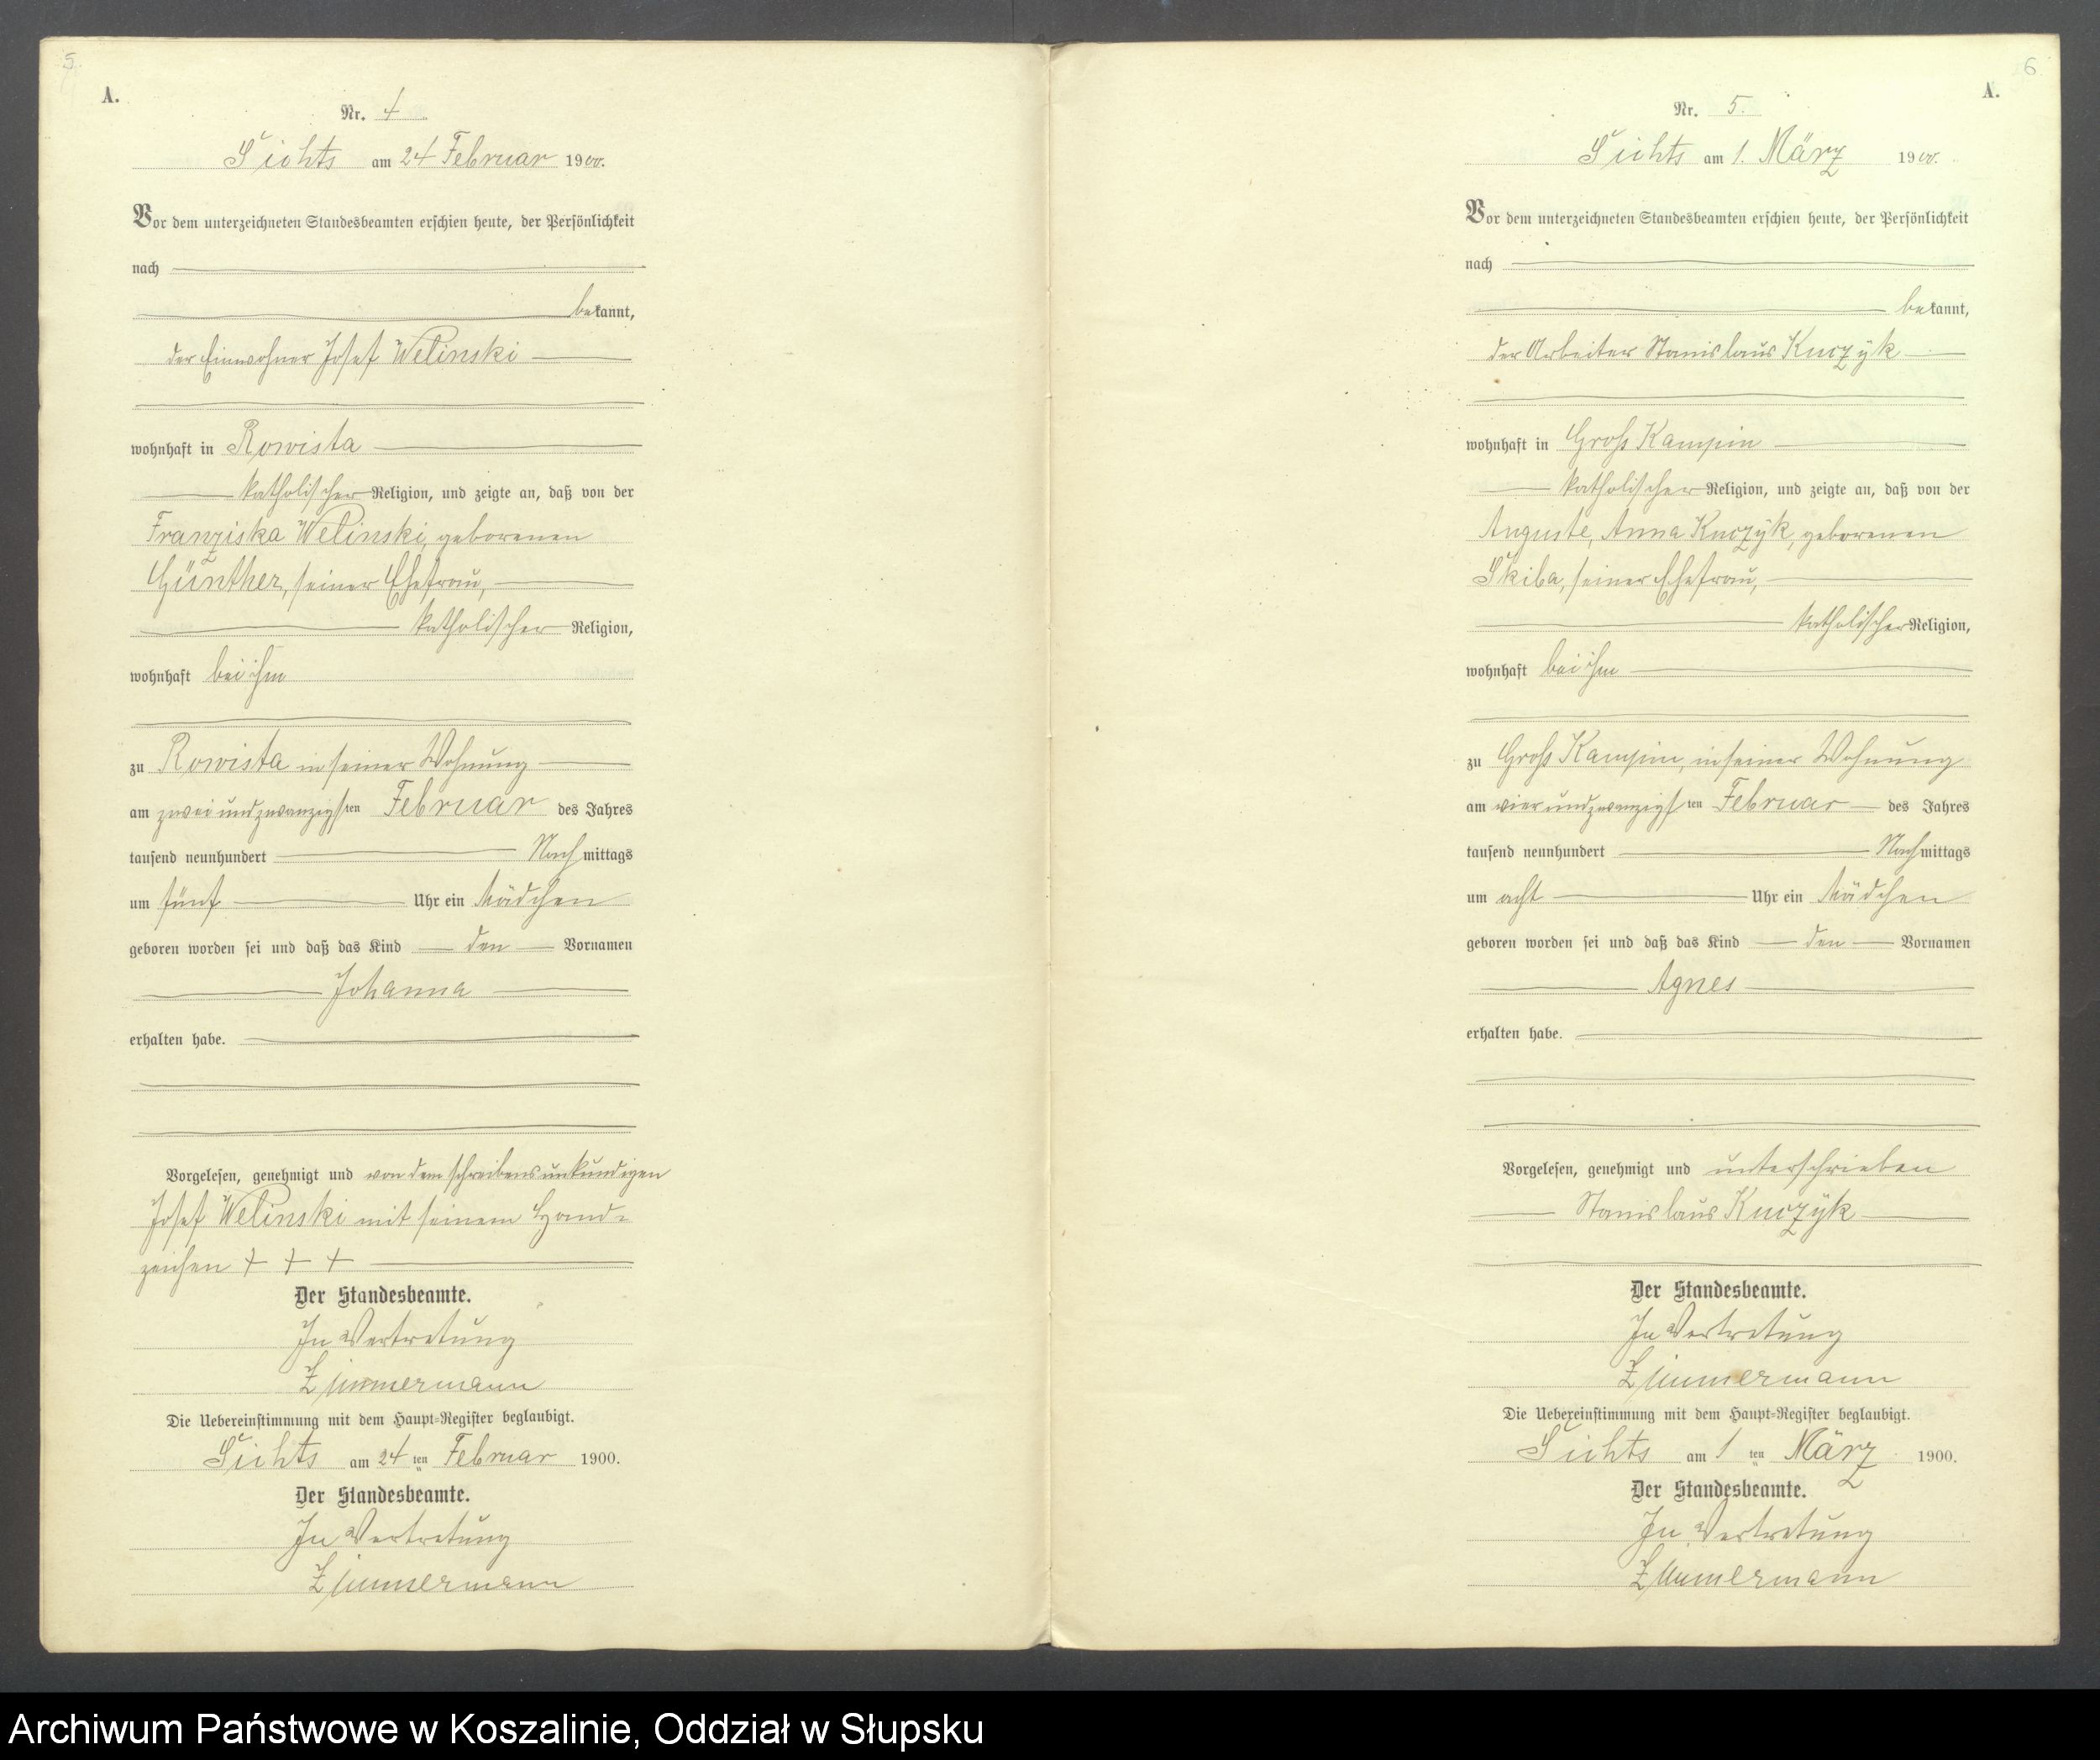 5.
A.
Nr. 4
Sichts am 24 Februar 1900.
Vor dem unterzeichneten Standesbeamten erschien heute, der Persönlichkeit
nach
bekannt,
der Einwohner Josef Welinski
wohnhaft in Rowista
katholischer Religion, und zeigte an, daß von der
Franziska Welinski, geborenen
Günther, seiner Ehefrau,
katholischer Religion,
wohnhaft bei ihm
zu Rowista in seiner Wohnung
am zwei und zwanzigsten Februar des Jahres
tausend neunhundert Nachmittags
um fünf Uhr ein Mädchen
geboren worden sei und daß das Kind den Vornamen
Johanna
erhalten habe.
Vorgelesen, genehmigt und von dem schreibensunkundigen
Josef Welinski mit seinem Hand-
zeichen + + +
Der Standesbeamte.
In Vertretung
Zimmermann
Die Uebereinstimmung mit dem Haupt-Register beglaubigt.
Sichts am 24 ten Februar 1900.
Der Standesbeamte.
In Vertretung
Zimmermann
6
A.
Nr. 5.
Sichts am 1. März 1900.
Vor dem unterzeichneten Standesbeamten erschien heute, der Persönlichkeit
nach
bekannt,
der Arbeiter Stanislaus Knczyk
wohnhaft in Groß Kampin
katholischer Religion, und zeigte an, daß von der
Auguste, Anna Knczyk, geborenen
Skiba, seiner Ehefrau,
katholischer Religion,
wohnhaft bei ihm
zu Groß Kampin, in seiner Wohnung
am vier und zwanzigsten Februar des Jahres
tausend neunhundert Nachmittags
um acht Uhr ein Mädchen
geboren worden sei und daß das Kind den Vornamen
Agnes
erhalten habe.
Vorgelesen, genehmigt und unterschrieben
Stanislaus Knczyk
Der Standesbeamte.
In Vertretung
Zimmermann
Die Uebereinstimmung mit dem Haupt-Register beglaubigt.
Sichts am 1 ten März 1900.
Der Standesbeamte.
In Vertretung
Zimmermann
Archiwum Państwowe w Koszalinie, Oddział w Słupsku